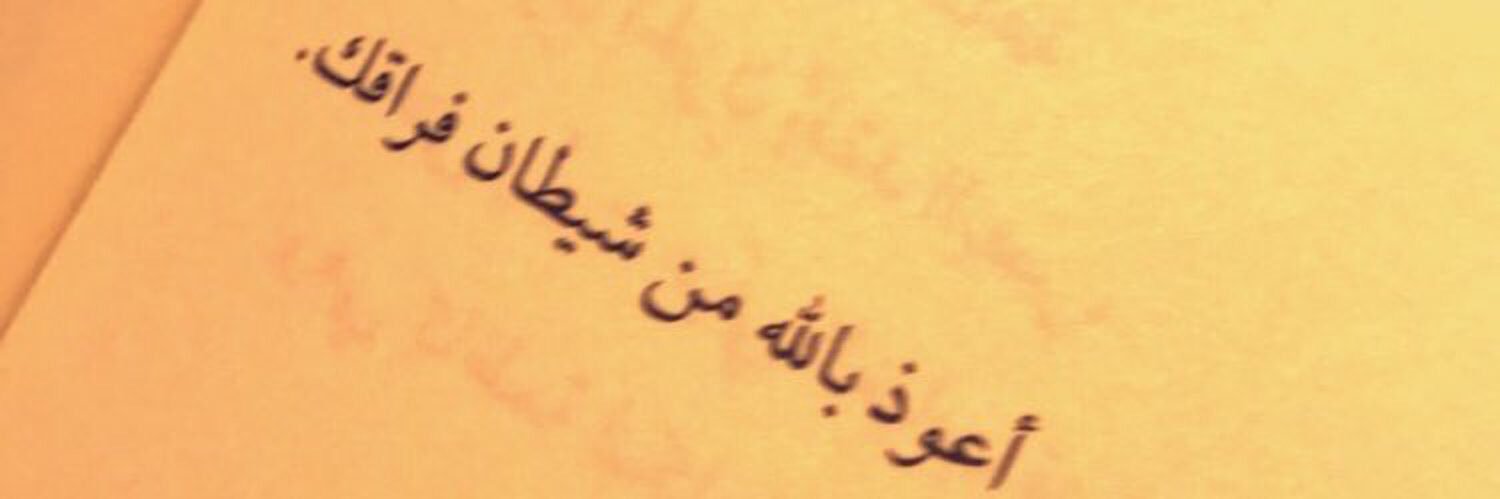 أعوذ بالله من شيطان فراقك.